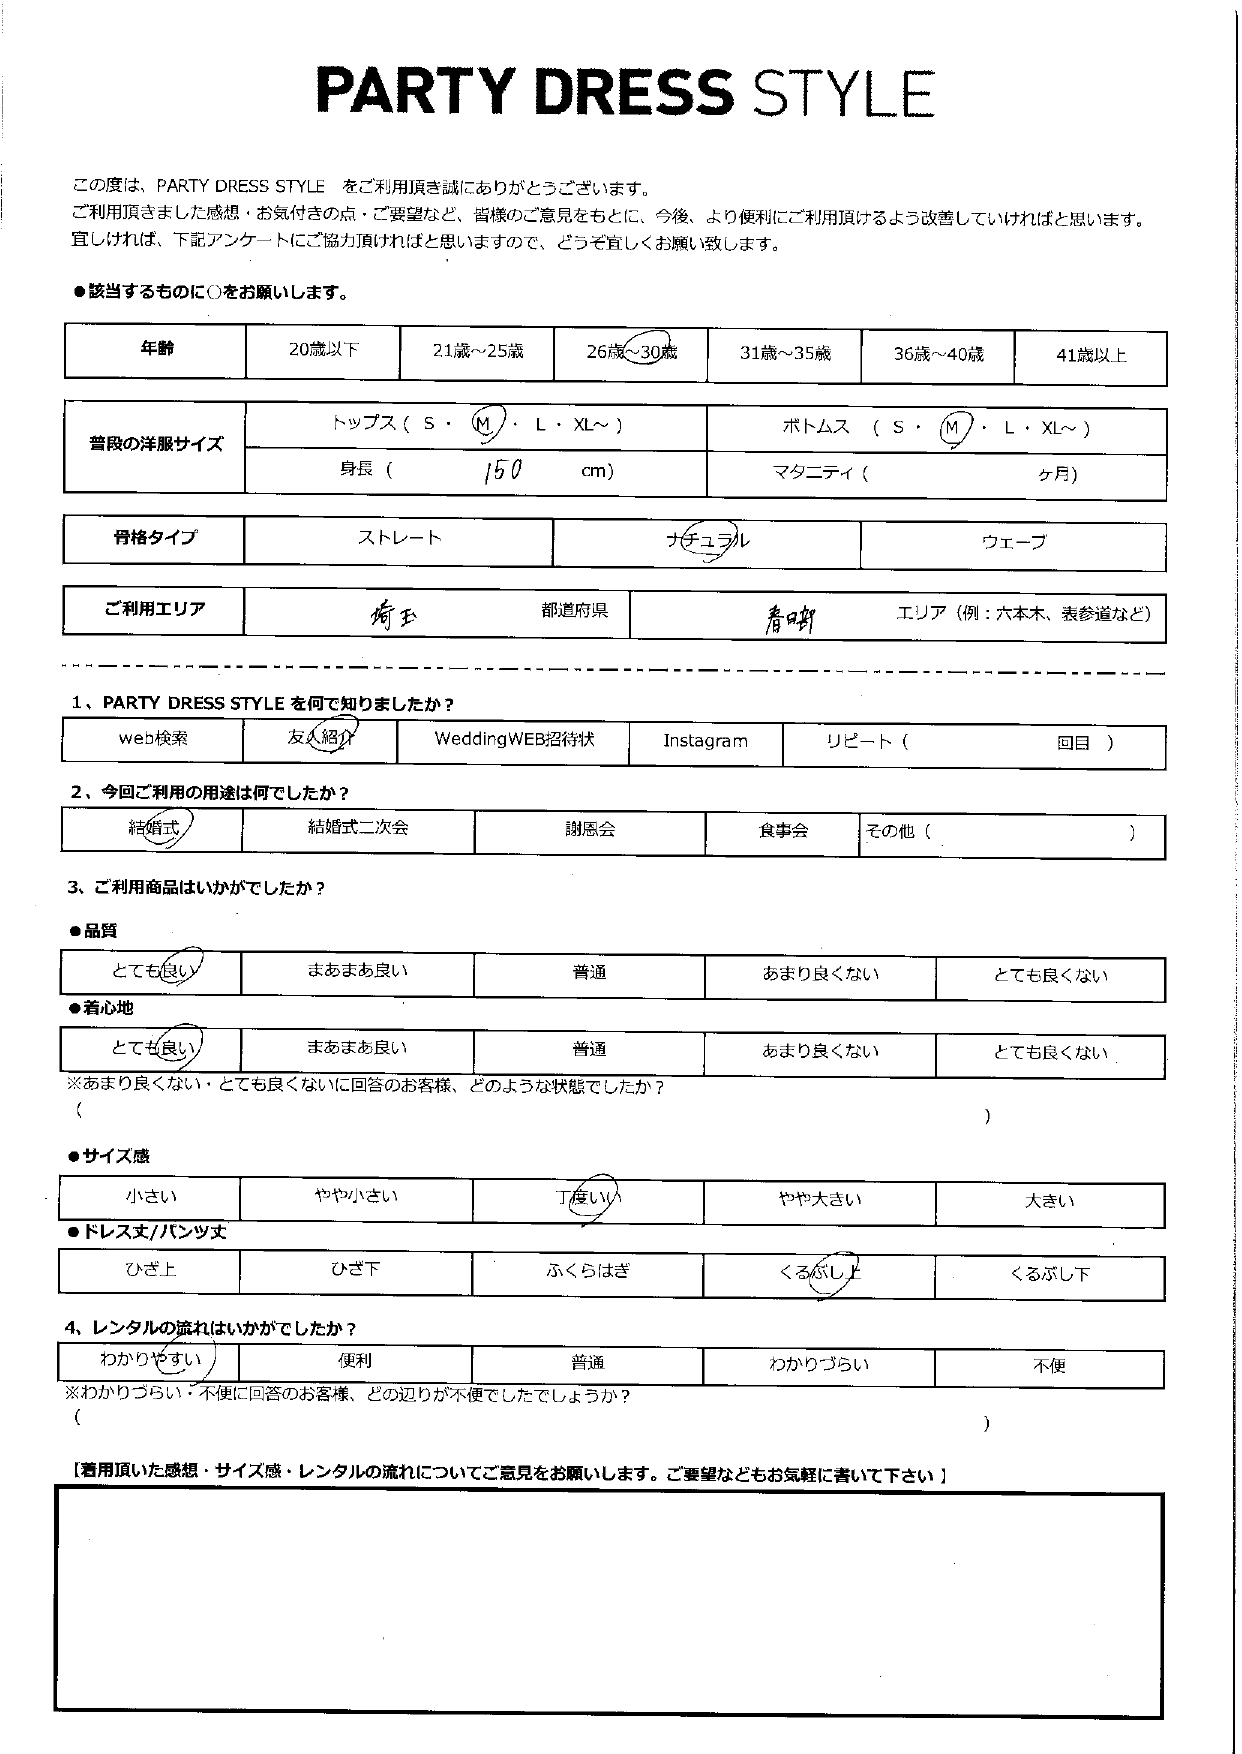 PARTY DRESS STYLE
この度は、PARTY DRESS STYLE をご利用頂き誠にありがとうございます。
ご利用頂きました感想・お気付きの点・ご要望など、皆様のご意見をもとに、今後、より便利にご利用頂けるよう改善していければと思います。
宜しければ、下記アンケートにご協力頂ければと思いますので、どうぞ宜しくお願い致します。
●該当するものに○をお願いします。
年齢 20歳以下 21歳～25歳 26歳～30歳 31歳～35歳 36歳～40歳 41歳以上
普段の洋服サイズ トップス ( S ・ M ・ L ・ XL～ ) ボトムス ( S ・ M ・ L ・ XL～ )
身長 ( 150 cm) マタニティ ( ヶ月)
骨格タイプ ストレート ナチュラル ウェーブ
ご利用エリア 埼玉 都道府県 春日部 エリア（例：六本木、表参道など）
1、PARTY DRESS STYLE を何で知りましたか？
web検索 友人紹介 WeddingWEB招待状 Instagram リピート ( 回目 )
2、今回ご利用の用途は何でしたか？
結婚式 結婚式二次会 謝恩会 食事会 その他 ( )
3、ご利用商品はいかがでしたか？
●品質
とても良い まあまあ良い 普通 あまり良くない とても良くない
●着心地
とても良い まあまあ良い 普通 あまり良くない とても良くない
※あまり良くない・とても良くないに回答のお客様、どのような状態でしたか？
( )
●サイズ感
小さい やや小さい 丁度いい やや大きい 大きい
●ドレス丈/パンツ丈
ひざ上 ひざ下 ふくらはぎ くるぶし上 くるぶし下
4、レンタルの流れはいかがでしたか？
わかりやすい 便利 普通 わかりづらい 不便
※わかりづらい・不便に回答のお客様、どの辺りが不便でしたでしょうか？
( )
【着用頂いた感想・サイズ感・レンタルの流れについてご意見をお願いします。ご要望などもお気軽に書いて下さい】